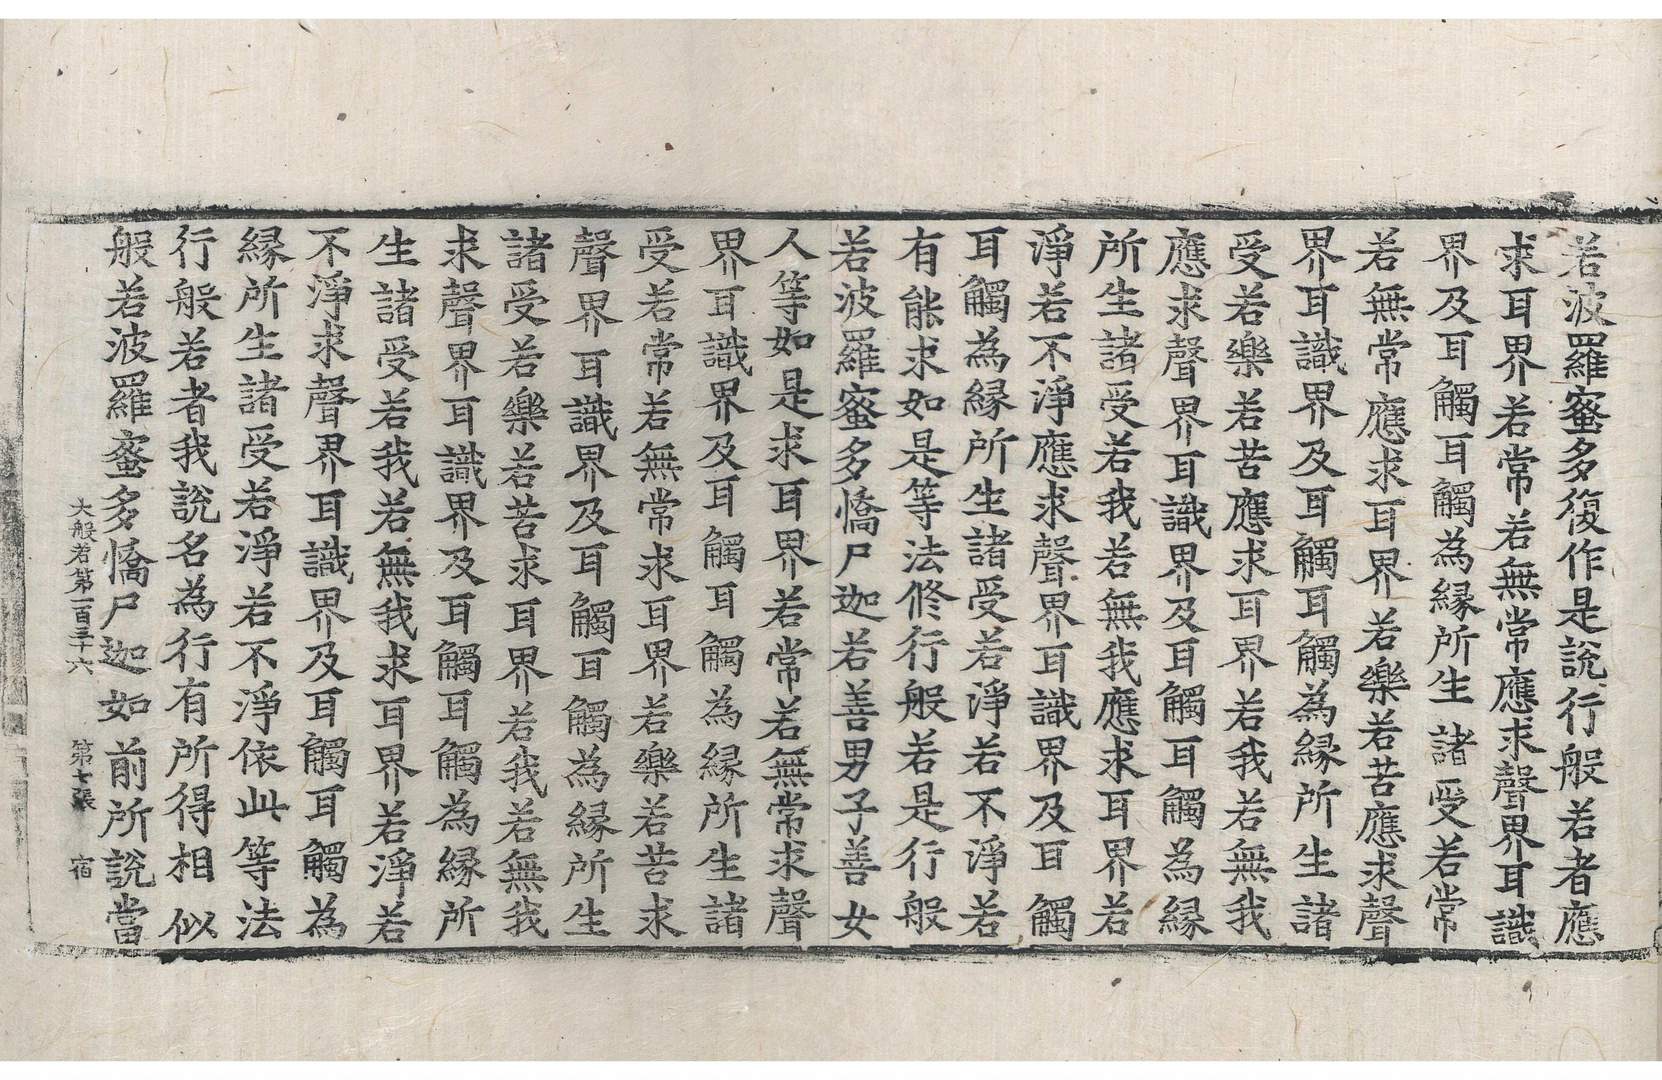 若波羅蜜多復作是說行般若者應
求耳界若常若無常應求聲界耳識
界及耳觸耳觸為縁所生諸受若常
若無常應求耳界若樂若苦應求聲
界耳識界及耳觸耳觸為縁所生諸
受若樂若苦應求耳界若我若無我
應求聲界耳識界及耳觸耳觸為縁
所生諸受若我若無我應求耳界若
淨若不淨應求聲界耳識界及耳觸
耳觸為縁所生諸受若淨若不淨若
有能求如是等法修行般若是行般
若波羅蜜多憍尸迦若善男子善女
人等如是求耳界若常若無常求聲
界耳識界及耳觸耳觸為縁所生諸
受若常若無常求耳界若樂若苦求
聲界耳識界及耳觸耳觸為縁所生
諸受若樂若苦求耳界若我若無我
求聲界耳識界及耳觸耳觸為縁所
生諸受若我若無我求耳界若淨若
不淨求聲界耳識界及耳觸耳觸為
縁所生諸受若淨若不淨依此等法
行般若者我說名為行有所得相似
般若波羅蜜多憍尸迦如前所說當
大般若第一百三十六 第七張 宿